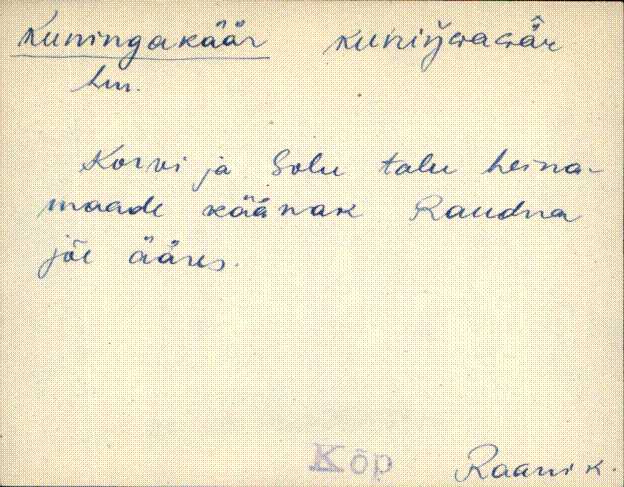 Kuningakäär kuniŋɢaɢä̂r
hm.
Korvi ja Solu talu heina-
maade käänak Raudna
jõe ääres.
Kõp Raani k.